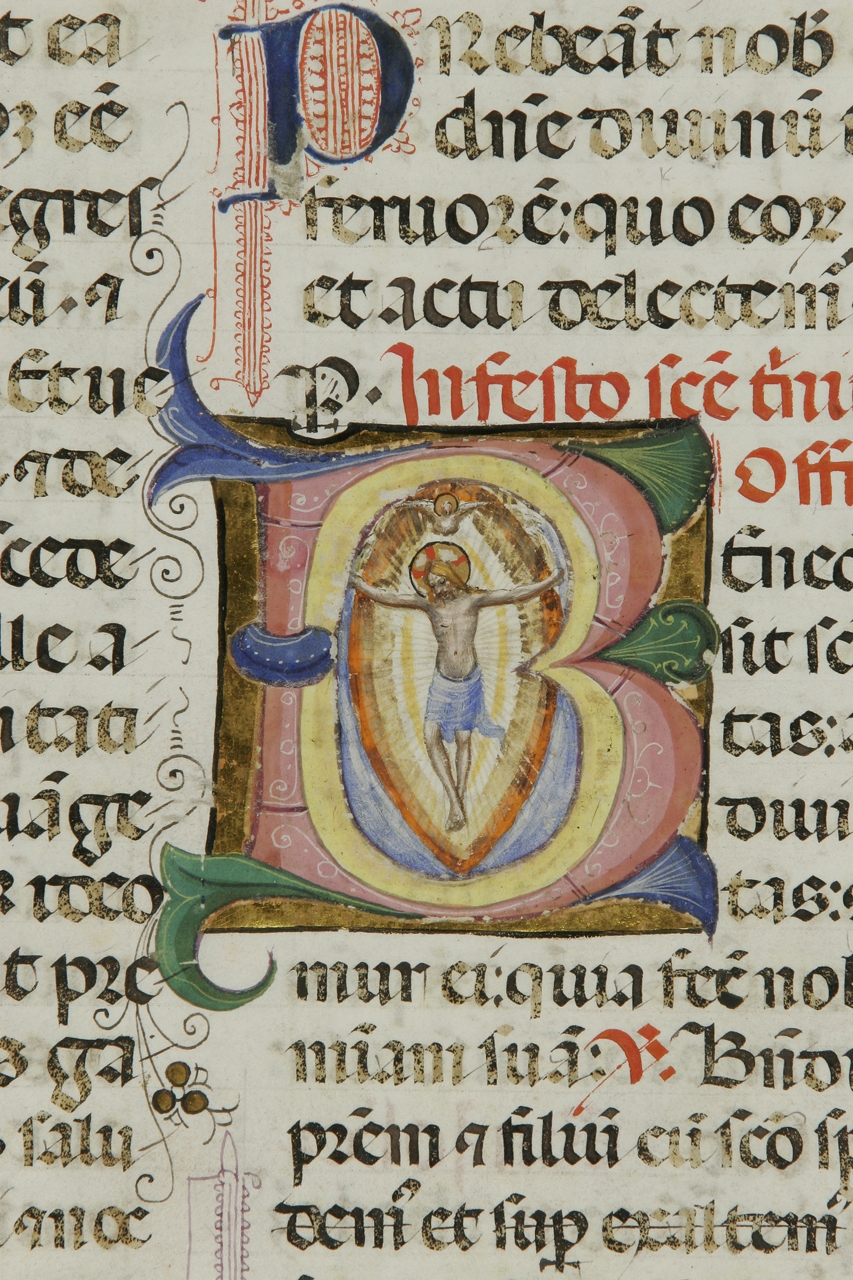 t ea
eē
egires
ui. ⁊
Et ue
⁊ de
scede
lle a
itati
uāge
r ideo
t pre
s ga
salu
Prebeāt nob̄
dn̄e diuinū
feruorē: quo cor
et actu delectem̄
P. In festo scē
Offi
Bened
sit sc
tas:
diui
tas:
mur ei: quia fec̄ nob
mīam suā: ℣. Bn̄di
prēm ⁊ filiū cū scō sp
dem̄ et suꝑ exaltem̄